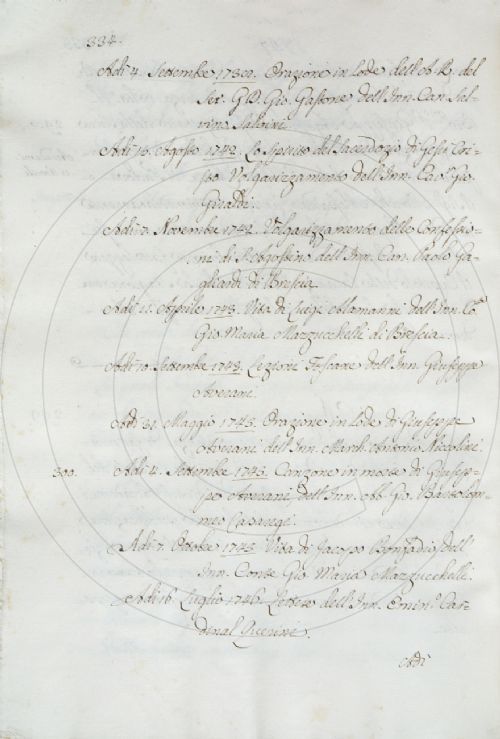 334.
Adì 4. Settembre 1739. Orazione in lode dell'A. R. del
Ser. G. D. Gio. Gastone dell'Inn. Can. Sal-
vino Salvini.
Adì 15. Agosto 1742. Lo Spirito del Sacerdozio di Gesù Cri-
sto Volgarizzamento dell'Inn. Gio.
Giraldi.
Adì 7. Novembre 1742. Volgarizzamento delle Confessio-
ni di S. Agostino dell'Inn. Can. Paolo Ga-
gliardi di Brescia.
Aprile 1743. Vita di Luigi Alamanni dell'Inn. Co.
Gio. Maria Mazzucchelli di Brescia.
Adì 10. Settembre 1743. Lezioni Toscane dell'Inn. Giuseppe
Averani.
Adì 31. Maggio 1745. Orazione in lode di Giuseppe
Averani dell'Inn. March. Antonio Niccolini.
300. Adì 4. Settembre 1745. Canzone in morte di Giusep-
pe Averani, dell'Inn. Ab. Gio. Bartolom-
meo Casaregi.
Adì 7. Ottobre 1745. Vita di Jacopo Bonfadio, dell'
Inn. Conte Gio. Maria Mazzucchelli.
Adì 16. Luglio 1746. Lettere dell'Inn. Emin. Car-
dinal Querini.
Adì